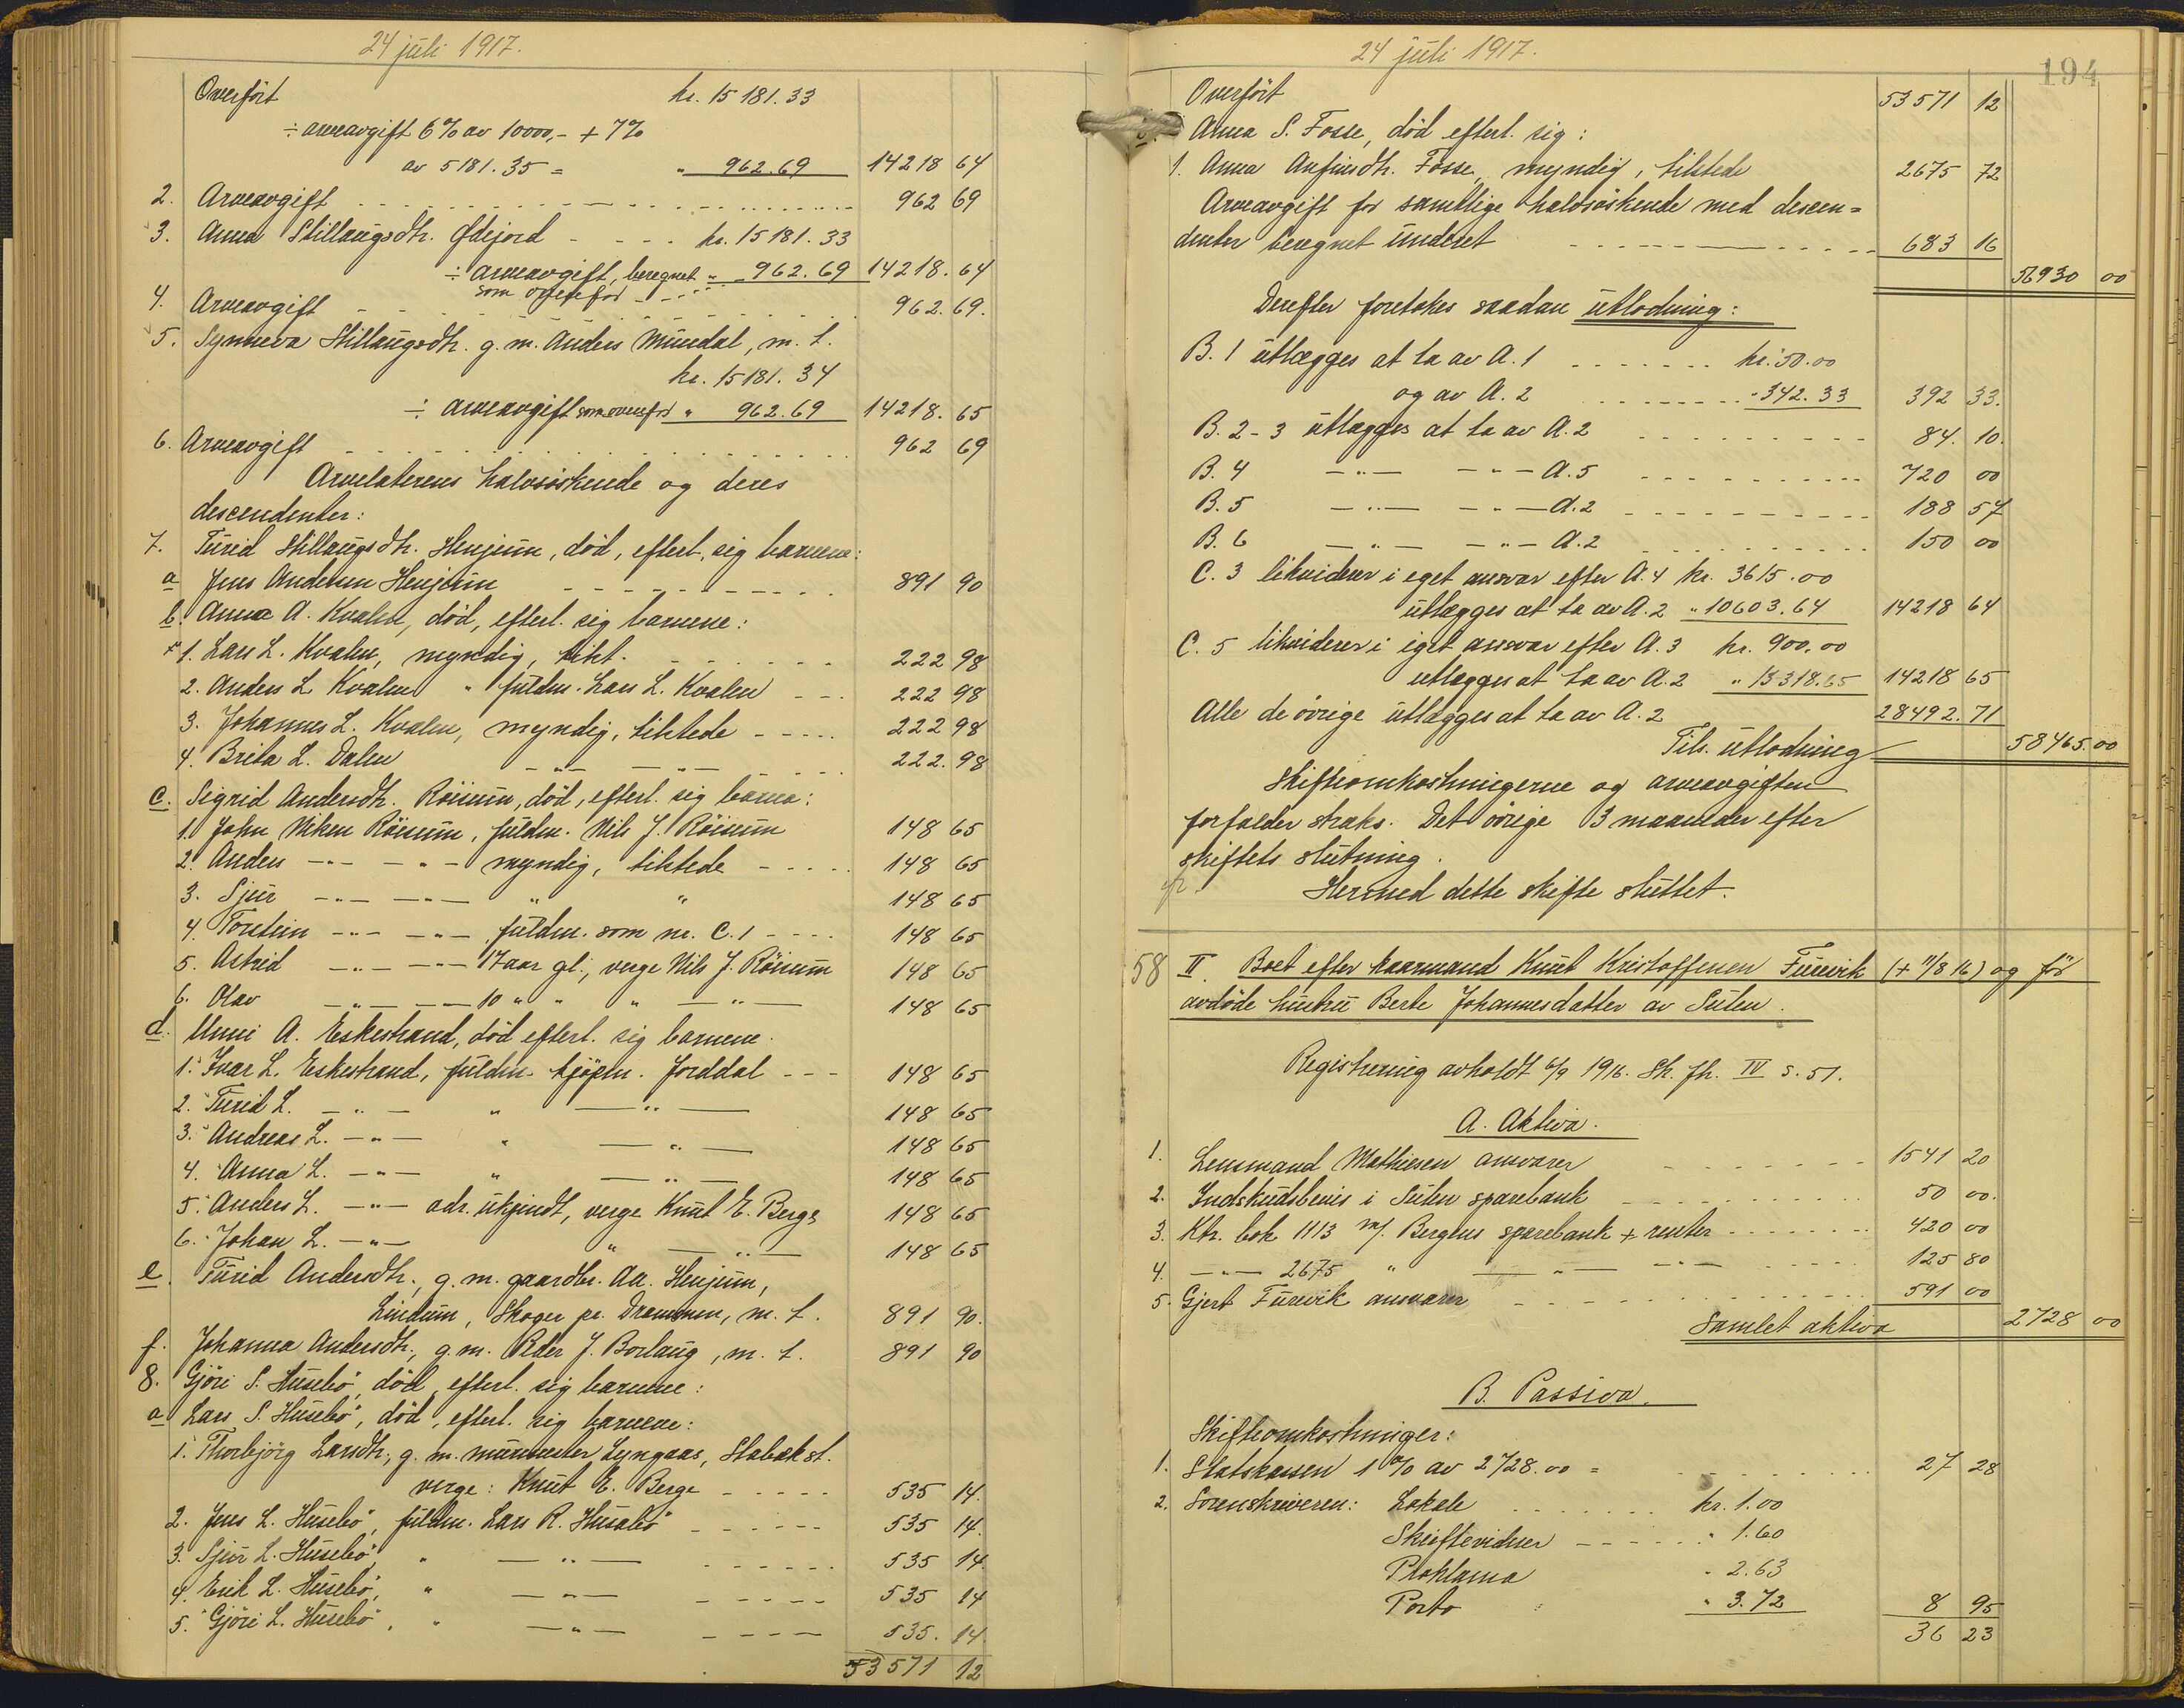 24 juli 1917.
Overført kr. 15181.33
÷ arveavgift 6% av 10000,- + 7%
av 5181.35 = " 962.69 14218 64
2. Arveavgift 962 69
3. Anna Stillaugsdtr. Ødejord kr. 15181.33
÷ arveavgift, beregnet " 962.69 14218.64
som ovenfor
4. Arveavgift 962.69.
5. Synneva Stillaugsdtr. g. m. Anders Mundal, m. t.
kr. 15181.34
÷ arveavgift som ovenfor " 962.69 14218.65
6. Arveavgift 962 69
Arvelaterens halvsøskende og deres
descendenter:
7. Turid Stillaugsdtr. Henjum, død, efterl. sig barnene:
a Jens Andersen Henjum 891 90
b. Anna A. Kvalen, død, efterl. sig barnene:
1. Lars L. Kvalen, myndig, tilst. 222 98
2. Anders L Kvalen " fuldm. Lars L. Kvalen 222 98
3. Johannes L. Kvalen, myndig, tilstede 222 98
4. Brita L. Dalen -"- -"- 222.98
c. Sigrid Andersdtr. Röisum, død, efterl. sig barna:
1. John Nilsen Röisum, fuldm. Nils J. Röisum 148 65
2. Anders -"- -"- myndig, tilstede 148 65
3. Sjur -"- -"- " " 148 65
4. Torstein -"- -"- fuldm. som nr. C.1 148 65
5. Astrid -"- -"- 17 aar gl., verge Nils J. Röisum 148 65
6. Olav -"- -"- 10 " " " -"- 148 65
d. Unni A. Eskestrand, død efterl. sig barnene.
1. Ivar L. Eskestrand, fuldm. kjöpm. Forddal 148 65
2. Turid L. -"- " -"- 148 65
3. Andreas L. -"- " -"- 148 65
4. Anna L. -"- " -"- 148 65
5. Anders L. -"- adr. ukjendt, verge Knut E. Berge 148 65
6. Johan L. -"- " -"- 148 65
e. Turid Andersdtr., g. m. gaardbr. Aa. Henjum,
Lindum, Skoger pr. Drammen, m. t. 891 90.
f. Johanna Andersdtr., g. m. Peder J. Borlaug, m. t. 891 90
8. Gjöri S. Husebö, död, efterl. sig barnene:
a Lars S. Husebö, död, efterl. sig barnene:
1. Thorbjörg Larsdtr., g. m. murmester Lyngaas, Stabæk st.
verge: Knut E. Berge 535 14.
2. Jens L. Husebö, fuldm. Lars R. Husabö 535 14.
3. Sjur L. Husebö, " -"- 535 14.
4. Erik L. Husebö, " -"- 535 14
5. Gjöri L. Husebö, " -"- 535.14.
53571 12
24 juli 1917.
194
Overført 53571 12
b. Anna S. Fosse, død efterl. sig:
1. Anna Anfinsdtr. Fosse, myndig, tilstede 2675 72
Arveavgift for samtlige halvsöskende med descen=
denter beregnet underet 683 16
56930 00
Derefter foretokes saadan utlodning:
B. 1 utlægges at ta av A. 1 kr. 50.00
og av A. 2 " 342.33 392 33.
B. 2-3 utlægges at ta av A. 2 84.10.
B. 4 -"- -"- A. 5 720 00
B. 5 -"- -"- A. 2 188 57
B. 6 -"- -"- A. 2 150 00
C. 3 likviderer i eget ansvar efter A. 4 kr. 3615.00
utlægges at ta av A. 2 " 10603.64 14218 64
C. 5 likviderer i eget ansvar efter A. 3 kr. 900.00
utlægges at ta av A. 2 " 13318.65 14218 65
Alle de övrige utlægges at ta av A. 2 28492.71
Tils. utlodning 58465.00
Skifteomkostningerne og arveavgiften
forfalder straks. Det övrige 3 maaneder efter
skiftets slutning.
Hermed dette skifte sluttet.
58 II. Boet efter kaarmand Knut Kristoffersen Furevik (+ 11/8 16) og för
avdöde hustru Berte Johannesdatter av Sulen.
Registrering avholdt 6/9 1916. Sk. fh. IV s. 51.
A. Aktiva.
1. Lensmand Mathiesen ansvarer 1541 20
2. Indskudsbevis i Sulen sparebank 50 00.
3. Ktr. bok 1113 m/ Bergens sparebank + renter 420 00
4. -"- 2675 " -"- -"- 125 80
5. Gjert Furevik ansvarer 591 00
Samlet aktiva 2728 00
B. Passiva.
Skifteomkostninger:
1. Statskassen 1% av 2728.00 = 27 28
2. Sorenskriveren: Lokale kr. 1.00
Skiftevidner " 1.60
Proklama " 2.63
Porto " 3.72 8 95
36 23